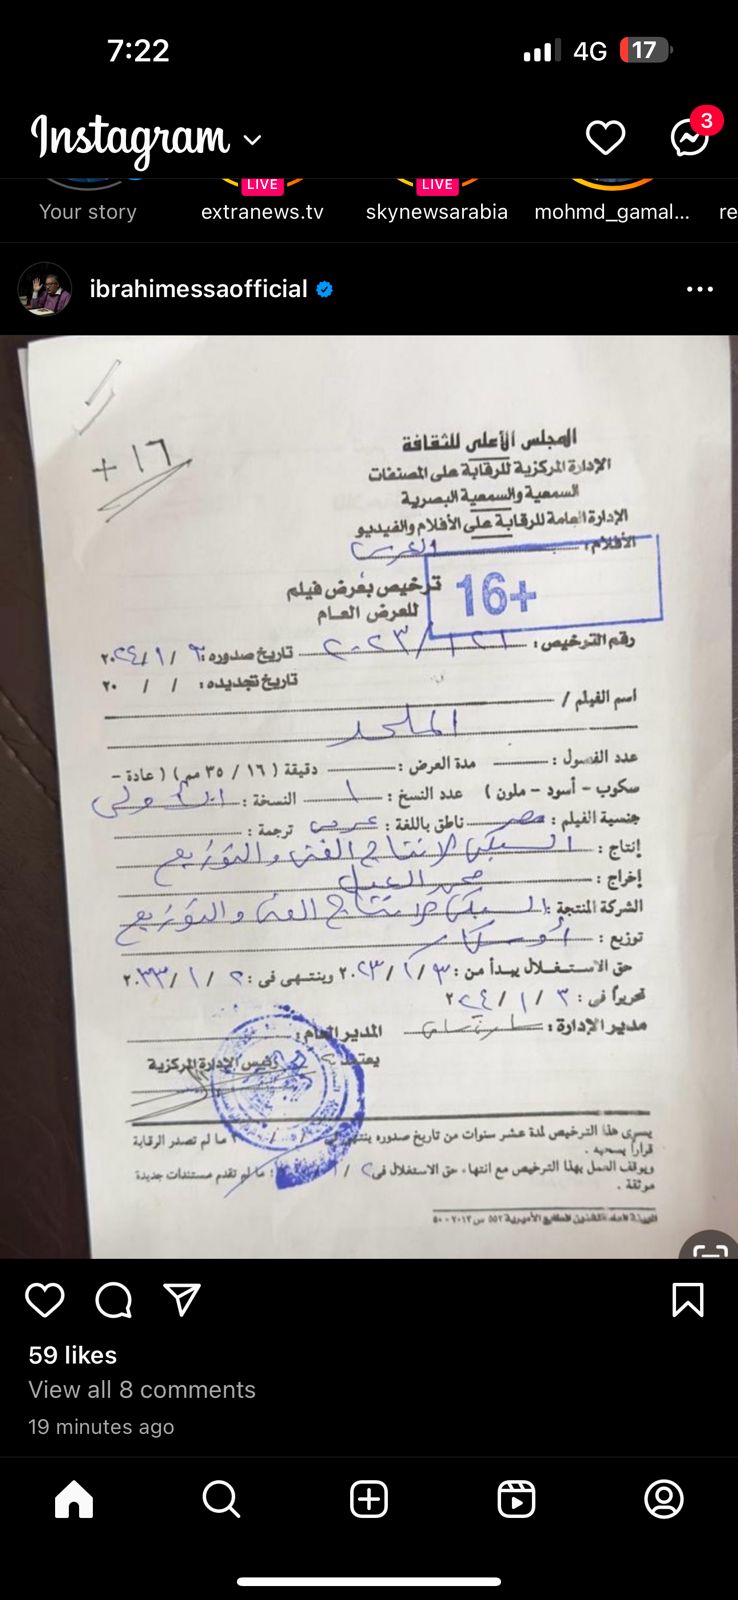 7:22
4G 17
Instagram
3
LIVE LIVE
Your story extranews.tv skynewsarabia mohmd_gamal... re
ibrahimessaofficial
+ ١٦
المجلس الأعلى للثقافة
الإدارة المركزية للرقابة على المصنفات
السمعية والسمعية البصرية
الإدارة العامة للرقابة على الأفلام والفيديو
الأفلام :
16+
ترخيص بعرض فيلم
للعرض العام
رقم الترخيص : ١٢١/٢٠٢٣ تاريخ صدوره : /١/٢٠٢٤
تاريخ تجديده : / / ٢٠
اسم الفيلم /
الملحد
عدد الفصول : مدة العرض : دقيقة ( ١٦ / ٣٥ مم ) ( عادة -
سكوب - أسود - ملون ) عدد النسخ : ١ النسخة : الأولى
جنسية الفيلم : مصر ناطق باللغة : عربى ترجمة :
إنتاج : السبكى للانتاج الفنى والتوزيع
إخراج : محمد العدل
الشركة المنتجة : السبكى للانتاج الفنى والتوزيع
توزيع : أوسكار
حق الاستغلال يبدأ من : ٣/١/٢٠٢٣ وينتهى فى : ٢/١/٢٠٣٣
تحريراً فى : ٣/١/٢٠٢٤
مدير الإدارة : المدير العام :
يعتمد
رئيس الإدارة المركزية
يسرى هذا الترخيص لمدة عشر سنوات من تاريخ صدوره ينتهى فى / / ما لم تصدر الرقابة
قراراً بسحبه .
ويوقف العمل بهذا الترخيص مع انتهاء حق الاستغلال فى ما لم تقدم مستندات جديدة
موثقة .
59 likes
View all 8 comments
19 minutes ago